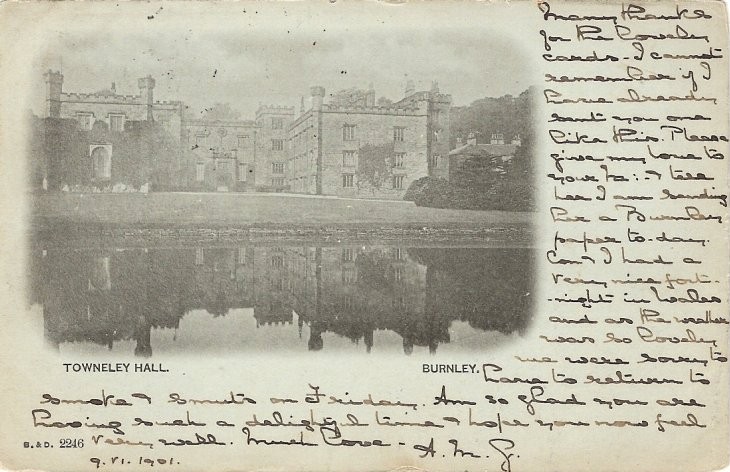 Many thanks
for the lovely
cards - I cannot
remember if I
have already
sent you one
like this. Please
give my love to
your Ma: & tell
her I am sending
her a Burnley
paper to-day.
Con & I had a
very nice fort-
-night in Wales
and as the weather
was so lovely
we were sorry to
have to return to
smoke & smuts on Friday. Am so glad you are
having such a delightful time & hope you now feel
very well. Much love - A. M. G.
9. VI. 1901.
TOWNELEY HALL. BURNLEY.
G. & D. 2246